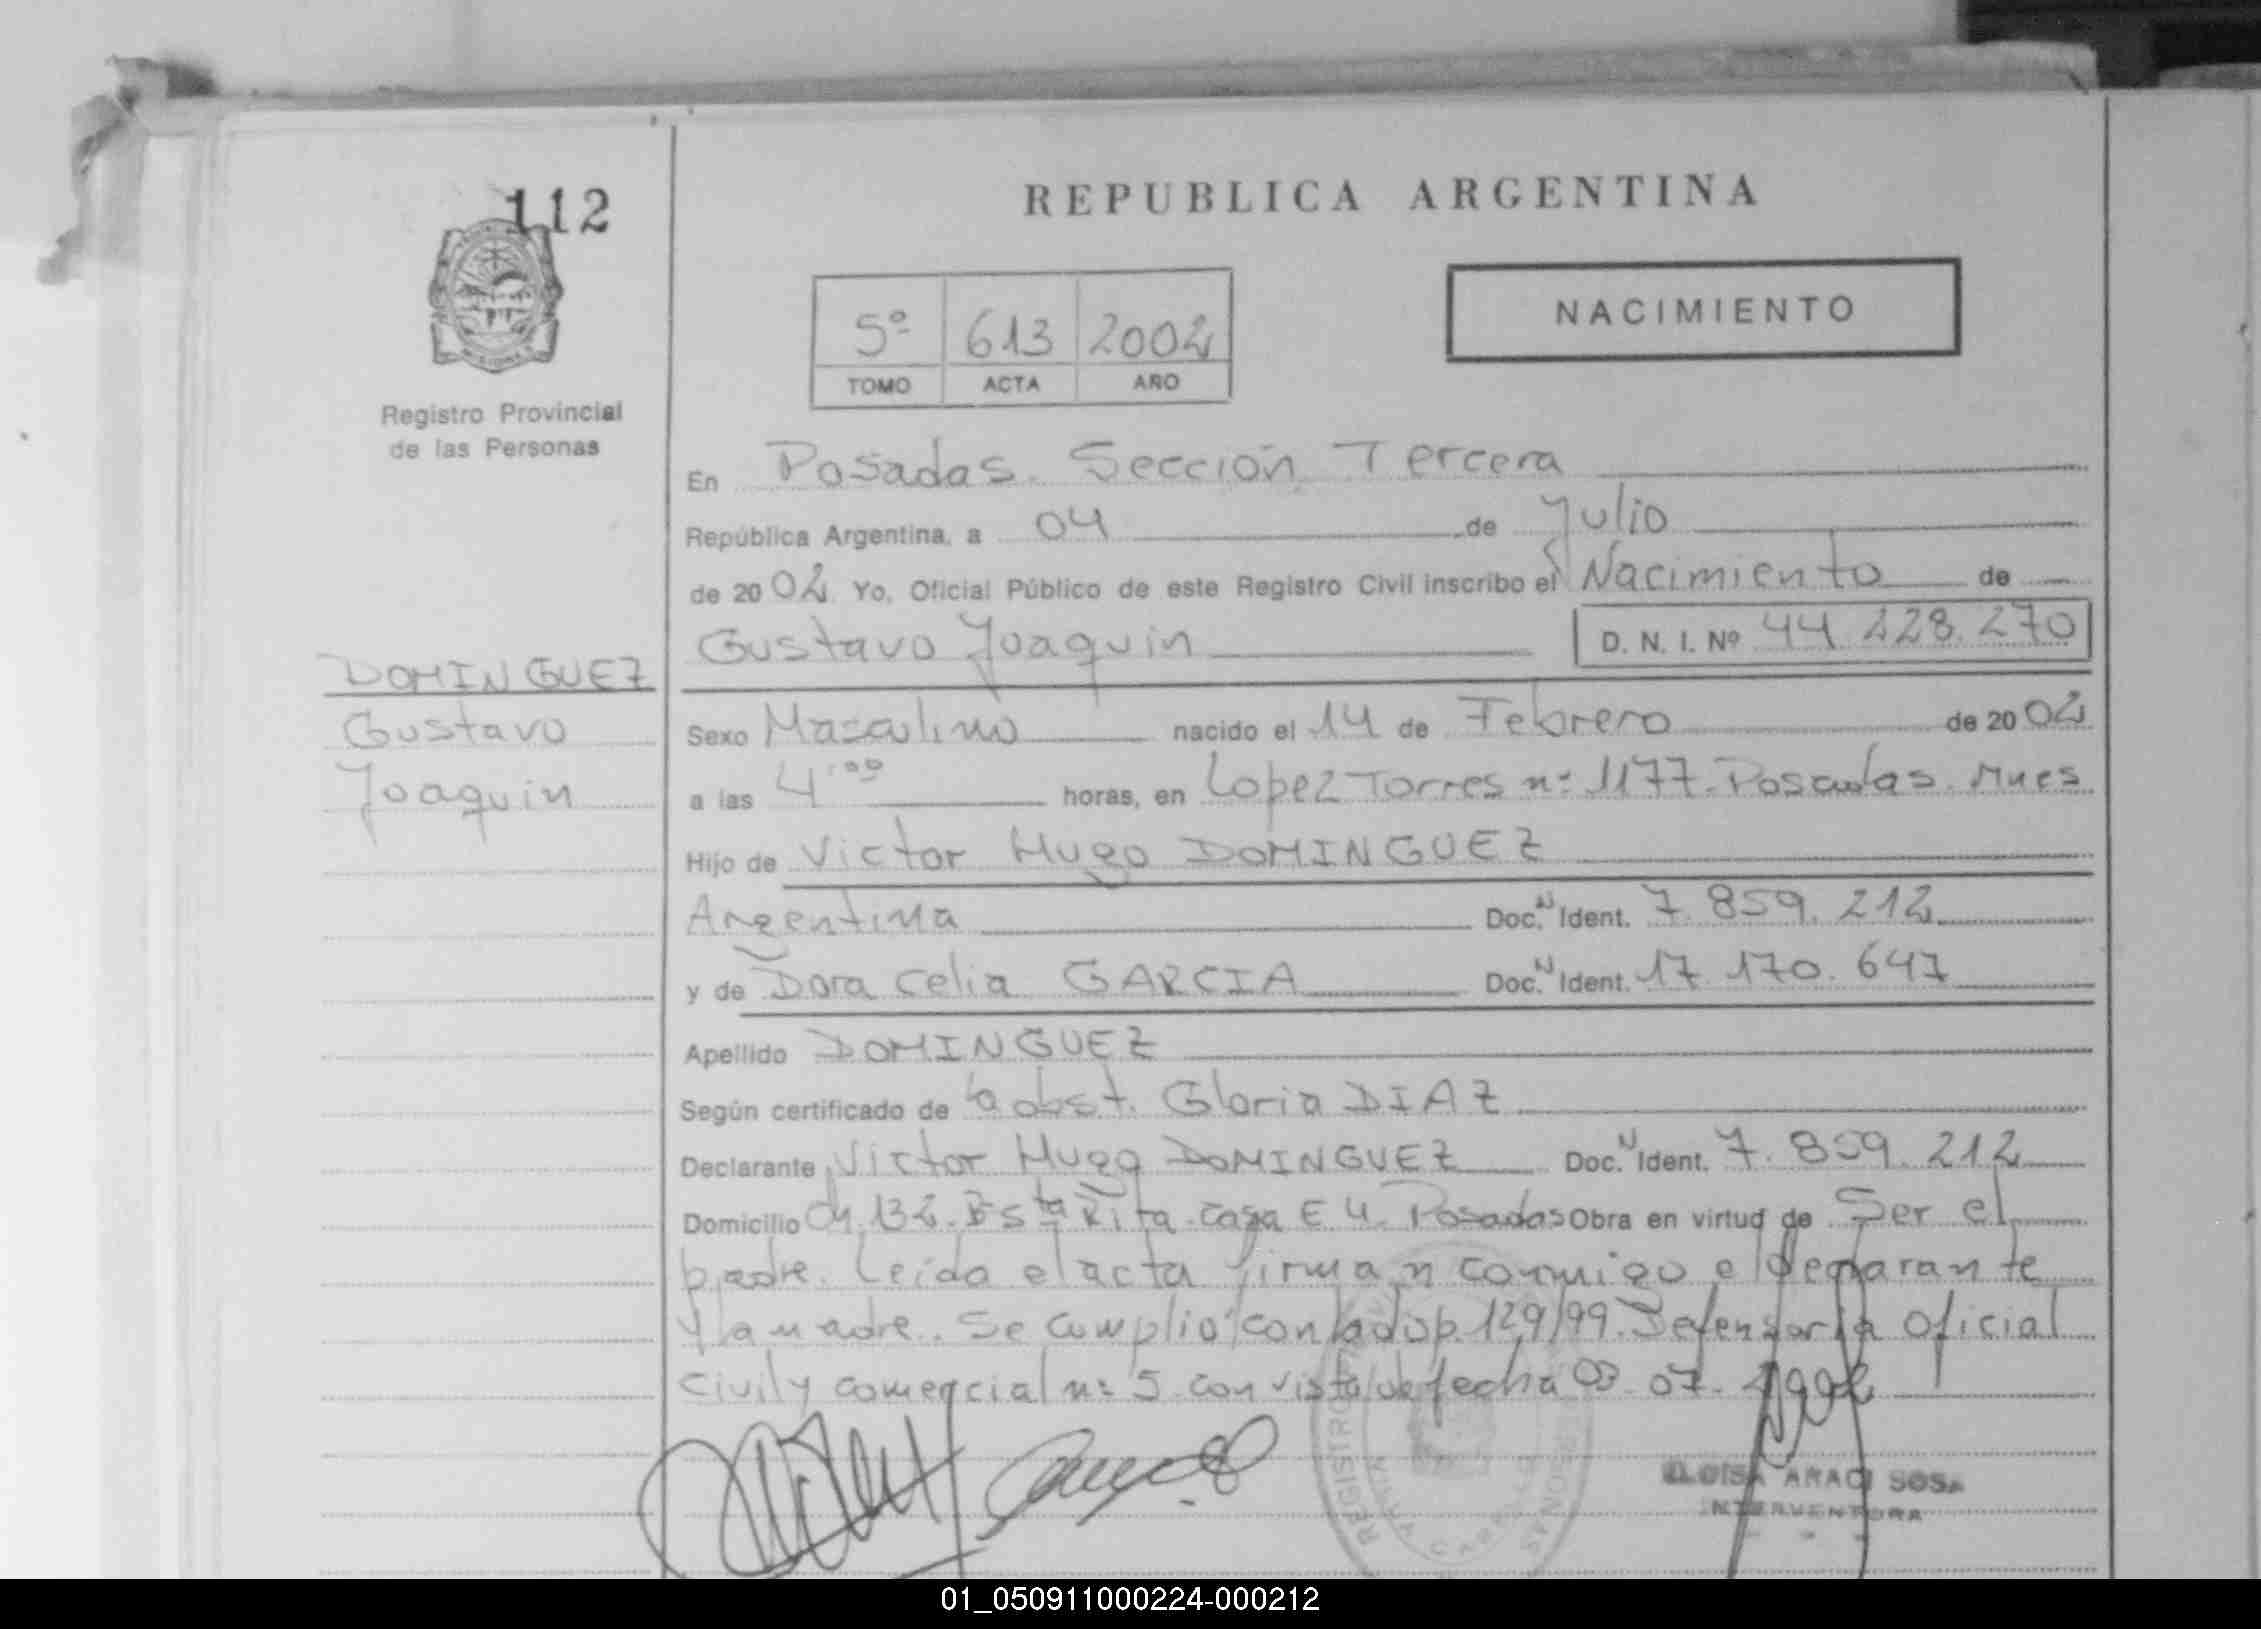 112
REPUBLICA ARGENTINA
NACIMIENTO
5º 613 2002
TOMO ACTA AÑO
Registro Provincial
de las Personas
En Posadas. Sección Tercera
República Argentina, a 04 de Julio
de 2002 Yo, Oficial Público de este Registro Civil inscribo el Nacimiento de
Gustavo Joaquin D. N. I. Nº 44.228.270
DOMINGUEZ
Gustavo
Joaquin
Sexo Masculino nacido el 14 de Febrero de 2002
a las 4:00 horas, en Lopez Torres nº 1177. Posadas. Mnes
Hijo de Victor Hugo DOMINGUEZ
Argentina Doc. N Ident. 7.859.212
y de Dora Celia GARCIA Doc. N Ident. 17.170.647
Apellido DOMINGUEZ
Según certificado de la obst. Gloria DIAZ
Declarante Victor Hugo DOMINGUEZ Doc. N Ident. 7.859.212
Domicilio Ch. 132. Bº Sta Rita. Casa E 4. Posadas Obra en virtud de Ser el
padre. Leida el acta firman conmigo el declarante
y la madre. Se cumplio con la disp. 129/99. Defensoria Oficial
Civil y comercial nº 5 con vista de fecha 03.07.
REGISTRO
PERSONAS
ARACI SOSA
INTERVENTORA
01_050911000224-000212